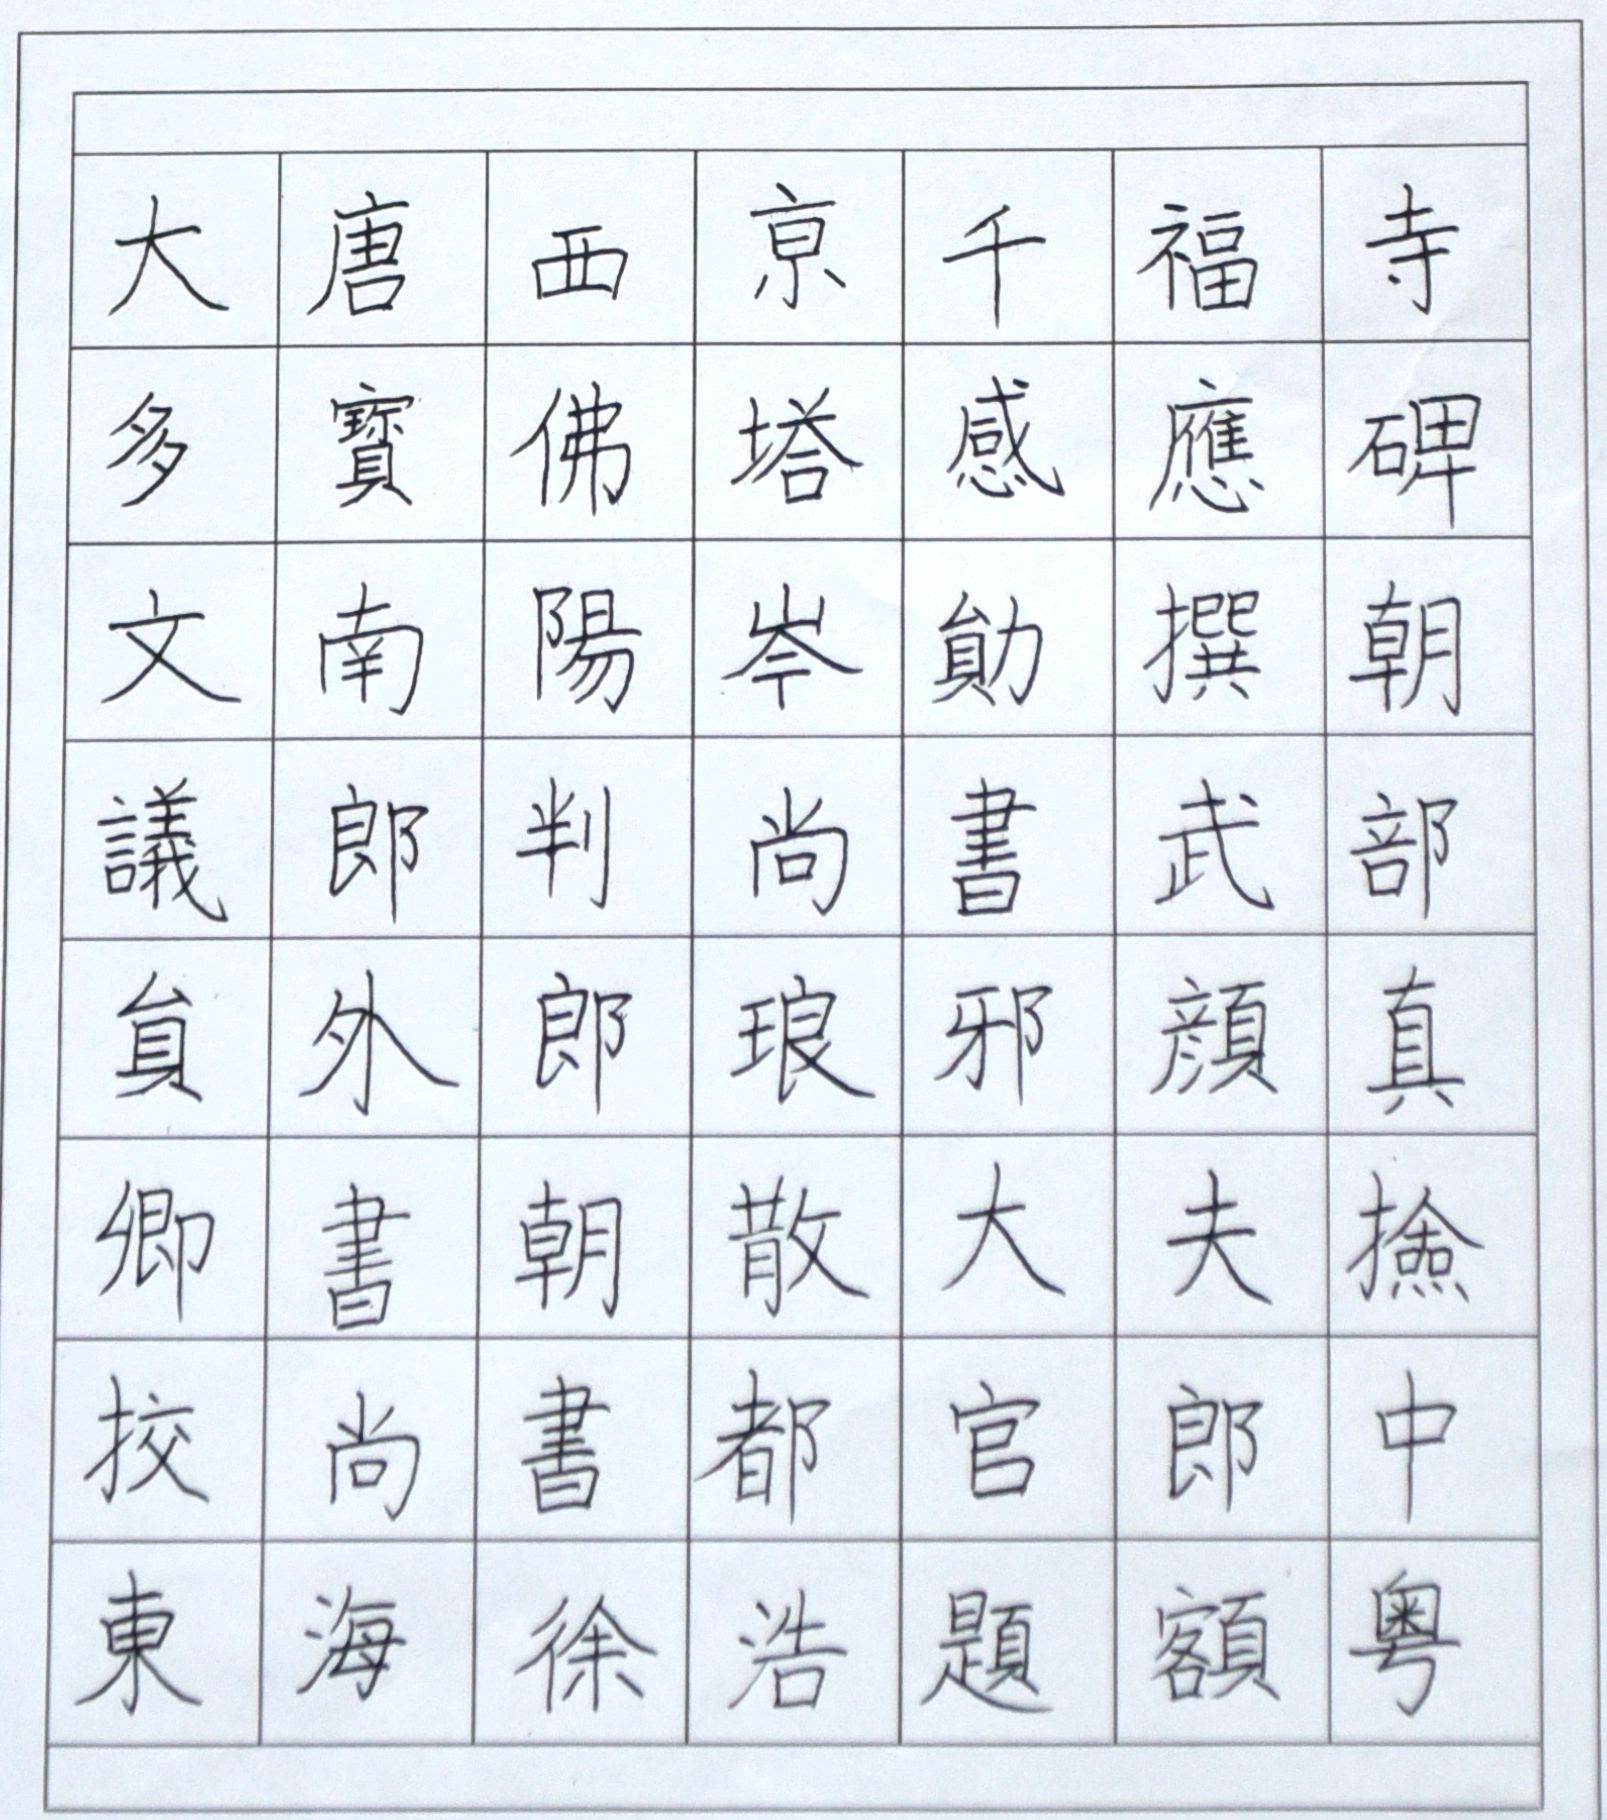 大唐西亰千福寺
多寶佛塔感應碑
文南陽岑勛撰朝
議郎判尚書武部
貟外郎琅邪顔真
卿書朝散大夫撿
挍尚書都官郎中
東海徐浩題額粤